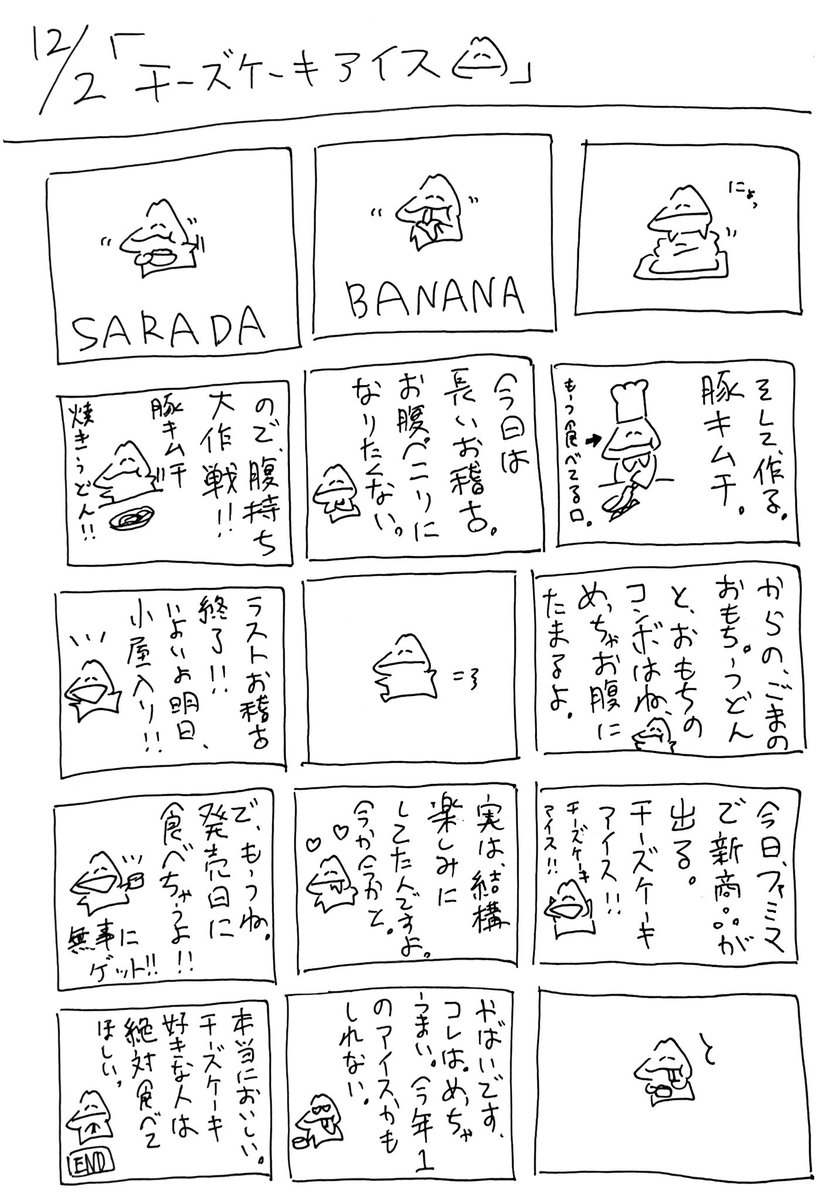 12/2「チーズケーキアイス」
にょっ
BANANA
SARADA
そして、作る。
豚キムチ。
もーつ食べてる口。
今日は
長いお稽古。
お腹ペこりに
なりたくない。
ので、腹持ち
大作戦!!
豚キムチ
焼きうどん!!
からの、ごまの
おもち。うどん
と、おもちの
コンボはね、
めっちゃお腹に
たまるよ。
ラストお稽古
終了!!
いよいよ明日、
小屋入り!!
今日、ファミマ
で新商品が
出る。
チーズケーキ
アイス!!
チーズケーキ
アイス!!
実は、結構
楽しみに
してたんですよ。
今か今かと。
で、もうね。
発売日に
食べちゃうよ!!
無事に
ゲット!!
やばいです、
コレは。めっちゃ
うまい。今年1
のアイスかも
しれない。
本当においしい。
チーズケーキ
好きな人は
絶対食べて
ほしい。
END